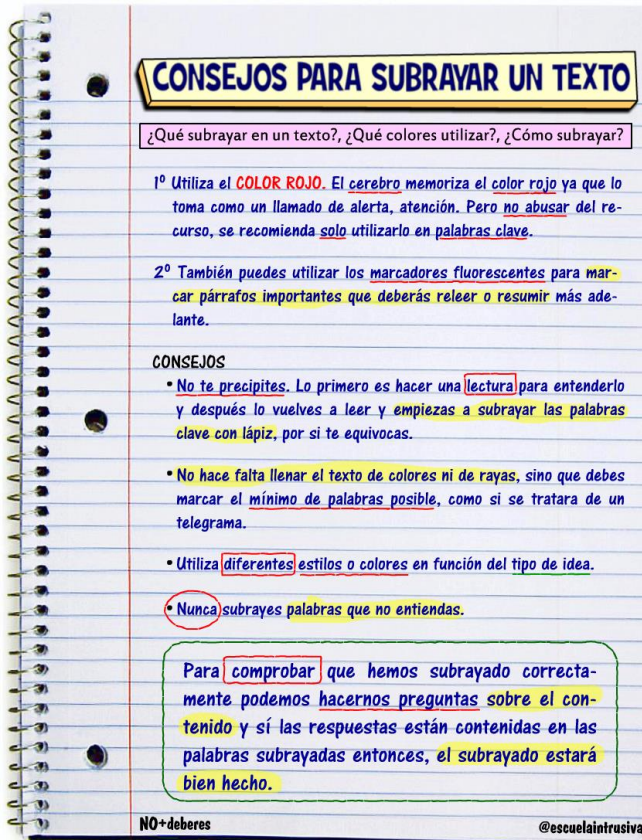 CONSEJOS PARA SUBRAYAR UN TEXTO
¿Qué subrayar en un texto?, ¿Qué colores utilizar?, ¿Cómo subrayar?
1º Utiliza el COLOR ROJO. El cerebro memoriza el color rojo ya que lo
toma como un llamado de alerta, atención. Pero no abusar del re-
curso, se recomienda solo utilizarlo en palabras clave.
2º También puedes utilizar los marcadores fluorescentes para mar-
car párrafos importantes que deberás releer o resumir más ade-
lante.
CONSEJOS
• No te precipites. Lo primero es hacer una lectura para entenderlo
y después lo vuelves a leer y empiezas a subrayar las palabras
clave con lápiz, por si te equivocas.
• No hace falta llenar el texto de colores ni de rayas, sino que debes
marcar el mínimo de palabras posible, como si se tratara de un
telegrama.
• Utiliza diferentes estilos o colores en función del tipo de idea.
• Nunca subrayes palabras que no entiendas.
Para comprobar que hemos subrayado correcta-
mente podemos hacernos preguntas sobre el con-
tenido y sí las respuestas están contenidas en las
palabras subrayadas entonces, el subrayado estará
bien hecho.
NO+deberes
@escuelaintrusiva